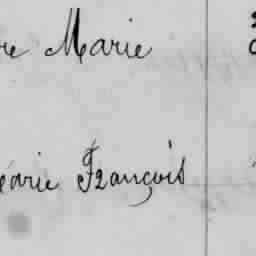 re Marie
arie François